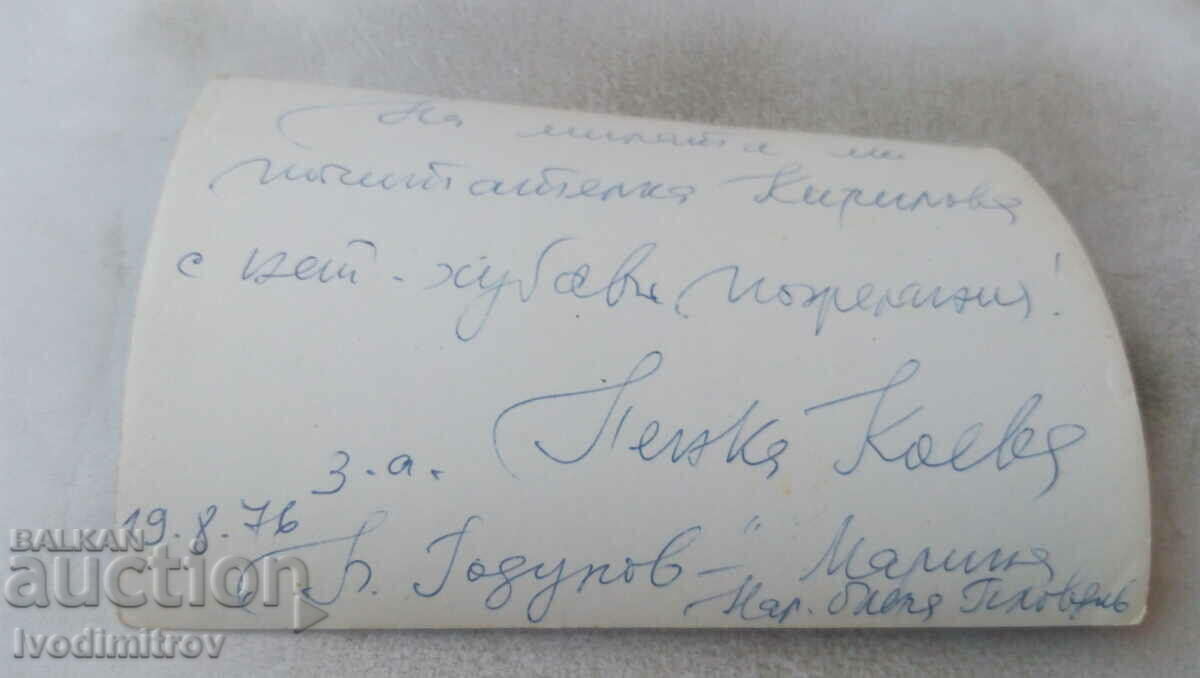 На милата ми
почитателка Кирилова
с най-хубави пожелания!
Пенка Коева
з.а.
19.8.76
"Б. Годунов" - Марина
Нар. опера Пловдив
BALKAN
auction
Ivodimitrov